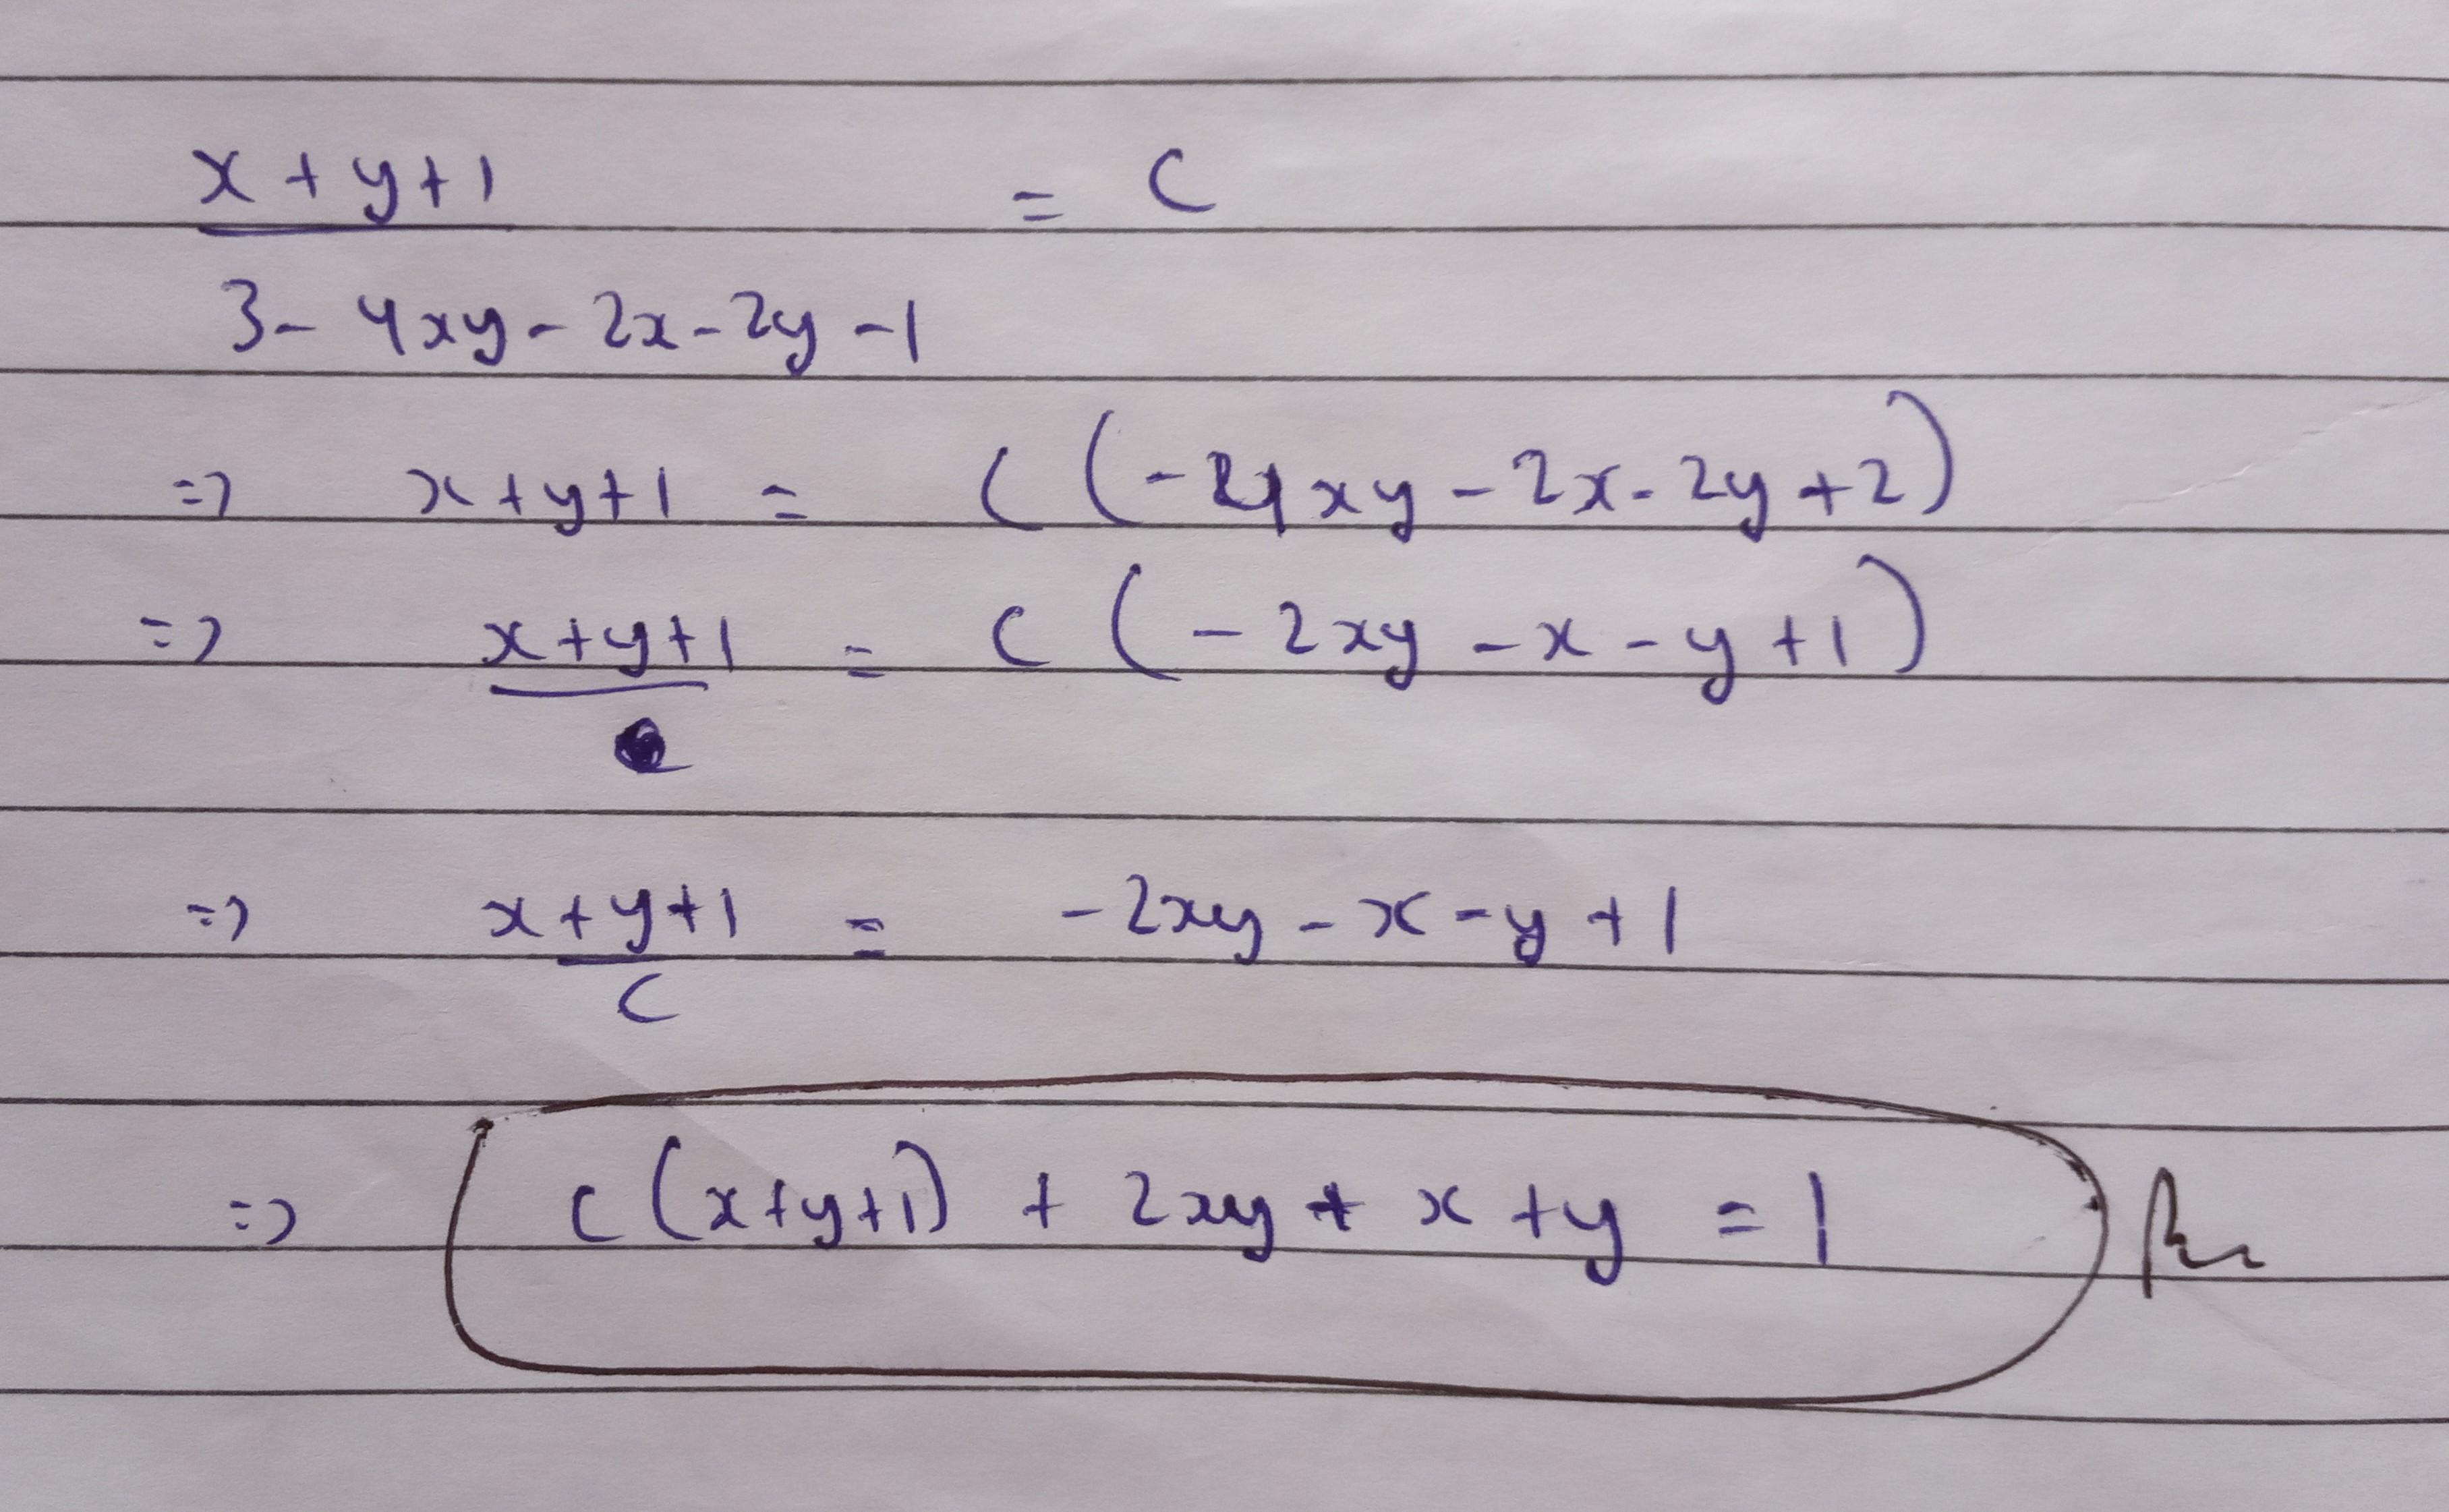 x + y + 1 = C
3 - 4xy - 2x - 2y - 1
=> x + y + 1 = C (-4xy - 2x - 2y + 2)
=> x + y + 1 = C (-2xy - x - y + 1)
=> x + y + 1 = -2xy - x - y + 1
C
=> C(x+y+1) + 2xy + x + y = 1